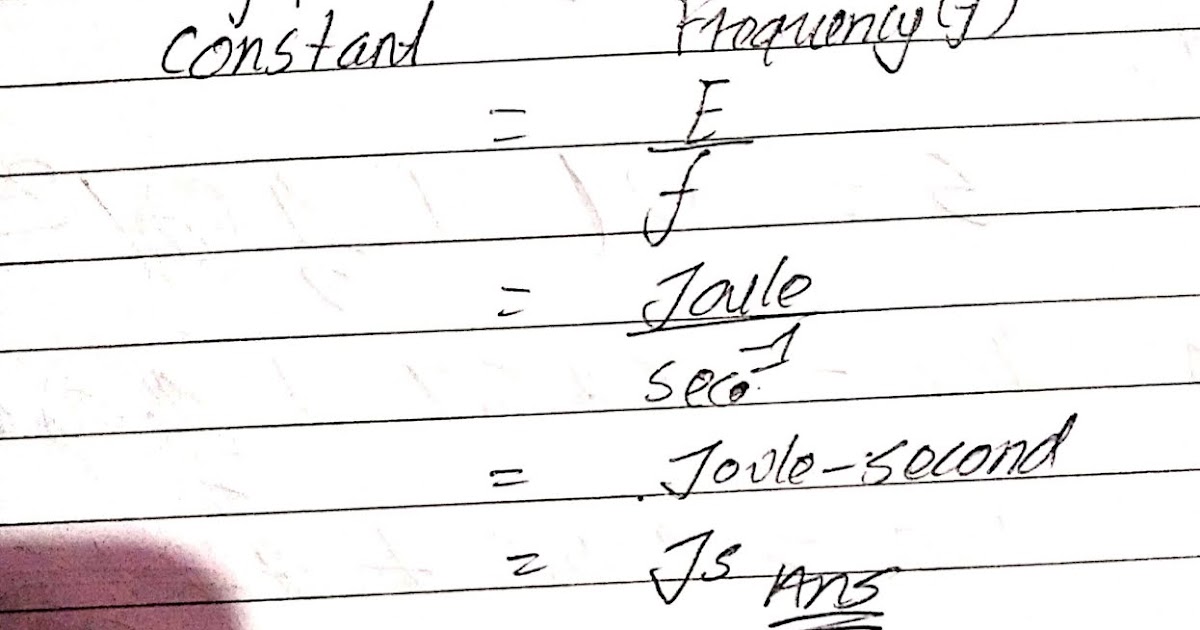 constant Frequency(f)
= E
f
= Joule
sec⁻¹
= Joule-second
= Js Ans